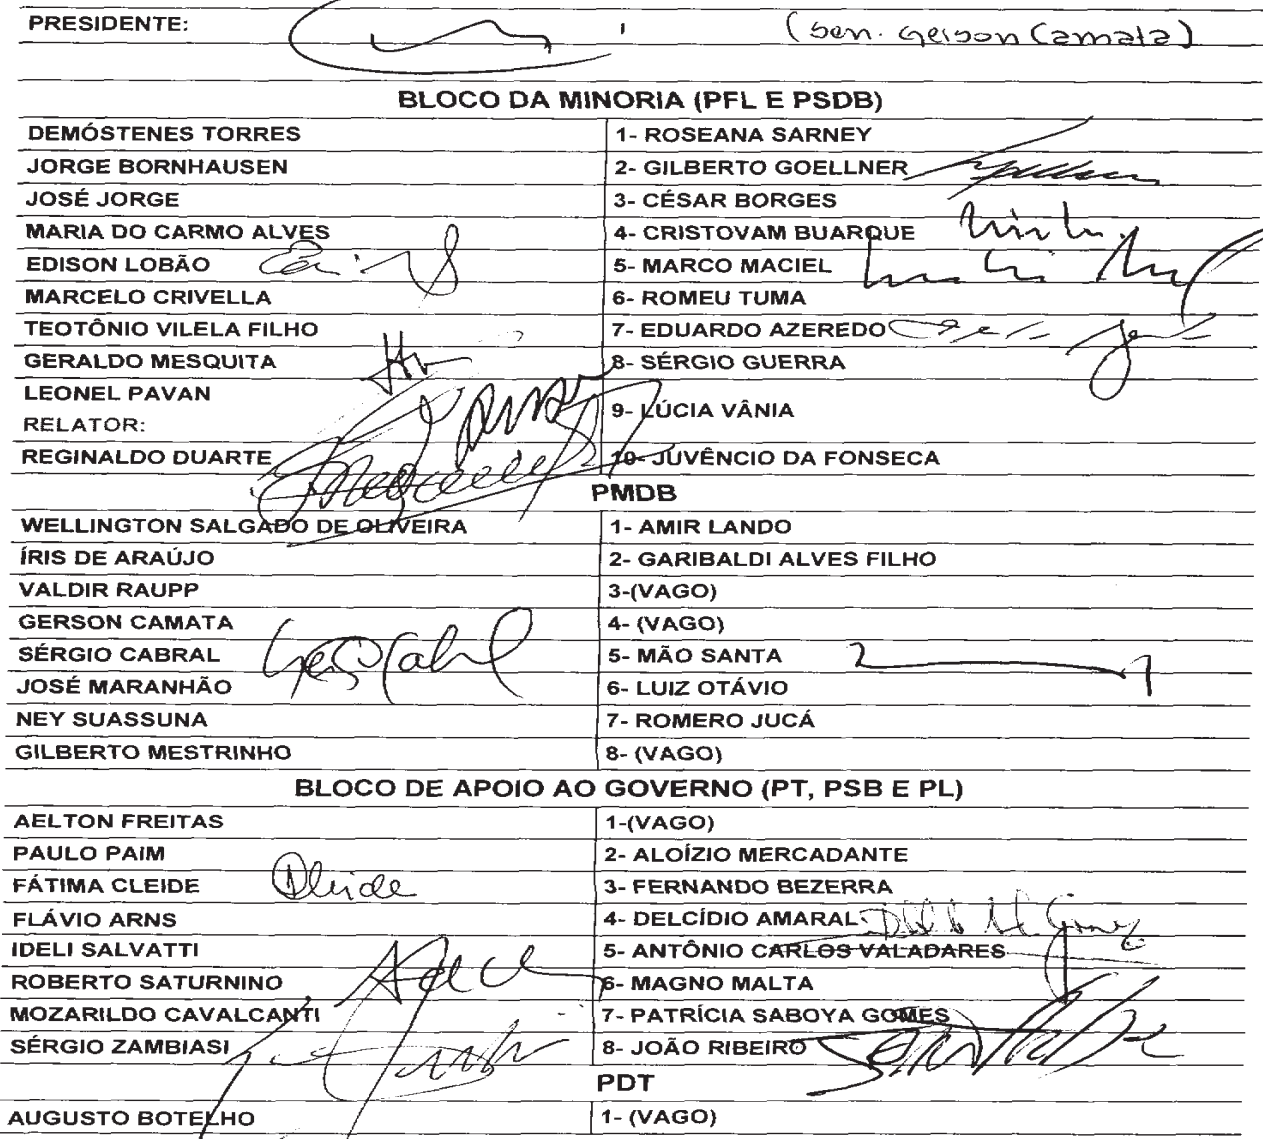 PRESIDENTE: (Sen. Gerson Camata)
BLOCO DA MINORIA (PFL E PSDB)
DEMÓSTENES TORRES 1- ROSEANA SARNEY
JORGE BORNHAUSEN 2- GILBERTO GOELLNER
JOSÉ JORGE 3- CÉSAR BORGES
MARIA DO CARMO ALVES 4- CRISTOVAM BUARQUE
EDISON LOBÃO 5- MARCO MACIEL
MARCELO CRIVELLA 6- ROMEU TUMA
TEOTÔNIO VILELA FILHO 7- EDUARDO AZEREDO
GERALDO MESQUITA 8- SÉRGIO GUERRA
LEONEL PAVAN 9- LÚCIA VÂNIA
RELATOR:
REGINALDO DUARTE 10- JUVÊNCIO DA FONSECA
PMDB
WELLINGTON SALGADO DE OLIVEIRA 1- AMIR LANDO
ÍRIS DE ARAÚJO 2- GARIBALDI ALVES FILHO
VALDIR RAUPP 3-(VAGO)
GERSON CAMATA 4- (VAGO)
SÉRGIO CABRAL 5- MÃO SANTA
JOSÉ MARANHÃO 6- LUIZ OTÁVIO
NEY SUASSUNA 7- ROMERO JUCÁ
GILBERTO MESTRINHO 8- (VAGO)
BLOCO DE APOIO AO GOVERNO (PT, PSB E PL)
AELTON FREITAS 1-(VAGO)
PAULO PAIM 2- ALOÍZIO MERCADANTE
FÁTIMA CLEIDE Cleide 3- FERNANDO BEZERRA
FLÁVIO ARNS 4- DELCÍDIO AMARAL
IDELI SALVATTI 5- ANTÔNIO CARLOS VALADARES
ROBERTO SATURNINO 6- MAGNO MALTA
MOZARILDO CAVALCANTI 7- PATRÍCIA SABOYA GOMES
SÉRGIO ZAMBIASI 8- JOÃO RIBEIRO
PDT
AUGUSTO BOTELHO 1- (VAGO)